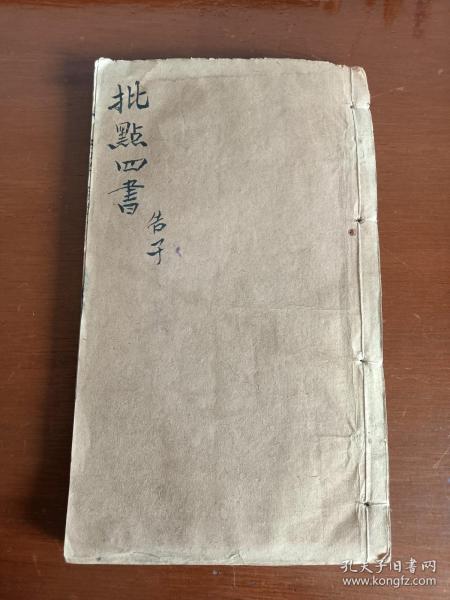 批點四書
告子
孔夫子旧书网
www.kongfz.com